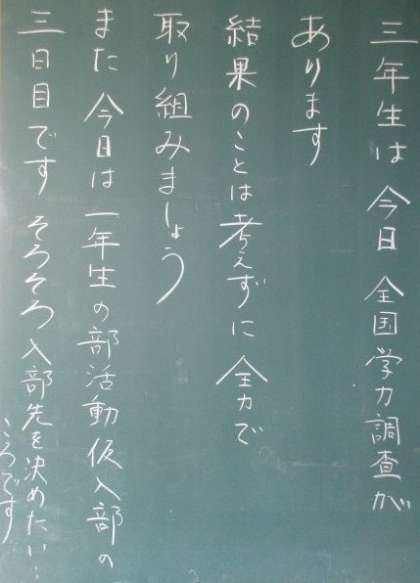 三年生は 今日 全国学力調査が
あります
結果のことは考えずに 全力で
取り組みましょう
また 今日は 一年生の部活動仮入部の
三日目です そろそろ入部先を決めたい
ころです